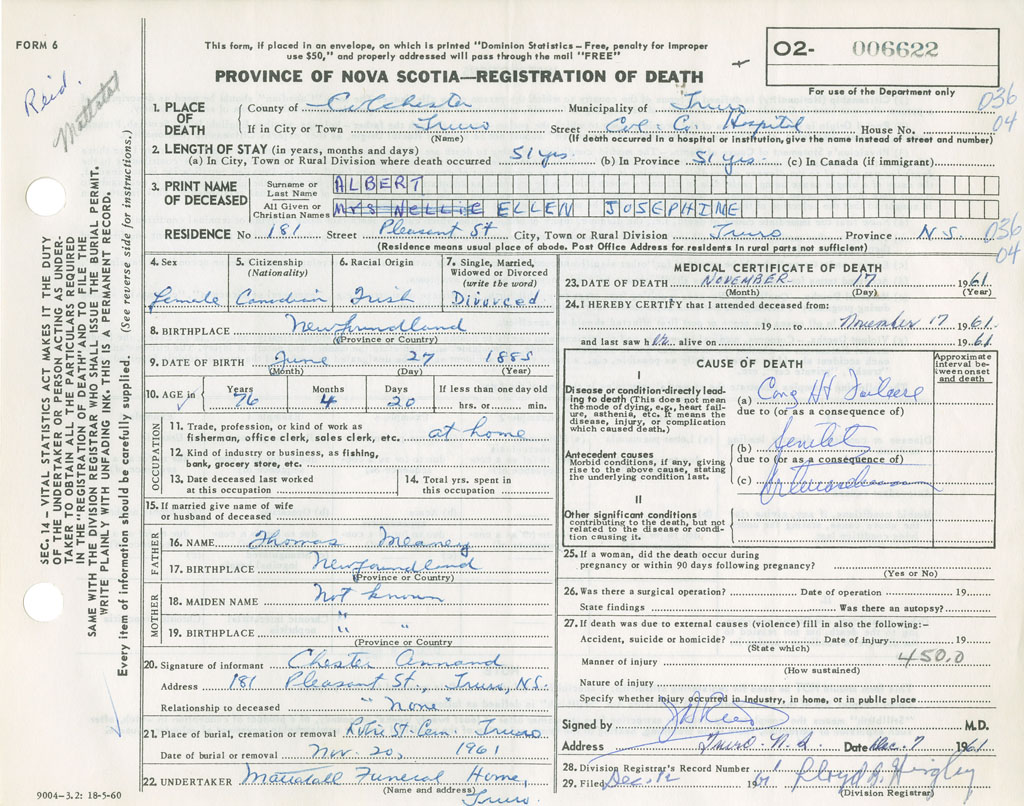 FORM 6
This form, if placed in an envelope, on which is printed "Dominion Statistics – Free, penalty for improper
use $50," and properly addressed will pass through the mail "FREE"
PROVINCE OF NOVA SCOTIA—REGISTRATION OF DEATH
02- 006622
For use of the Department only
Reid.
036
04
SEC. 14 – VITAL STATISTICS ACT MAKES IT THE DUTY
OF THE UNDERTAKER OR PERSON ACTING AS UNDER-
TAKER TO OBTAIN ALL THE PARTICULARS REQUIRED
IN THE "REGISTRATION OF DEATH" AND TO FILE THE
SAME WITH THE DIVISION REGISTRAR WHO SHALL ISSUE THE BURIAL PERMIT.
WRITE PLAINLY WITH UNFADING INK. THIS IS A PERMANENT RECORD.
Every item of information should be carefully supplied. (See reverse side for instructions.)
1. PLACE OF DEATH
County of Colchester Municipality of Truro
If in City or Town Truro Street Col. Co. Hospital House No.
(Name) (If death occurred in a hospital or institution, give the name instead of street and number)
2. LENGTH OF STAY (in years, months and days)
(a) In City, Town or Rural Division where death occurred 51 yrs. (b) In Province 51 yrs. (c) In Canada (if immigrant)
3. PRINT NAME OF DECEASED
Surname or Last Name ALBERT
All Given or Christian Names MRS NELLIE ELLEN JOSEPHINE
RESIDENCE No 181 Street Pleasant St City, Town or Rural Division Truro Province N.S.
(Residence means usual place of abode. Post Office Address for residents in rural parts not sufficient)
036
04
4. Sex
Female
5. Citizenship (Nationality)
Canadian
6. Racial Origin
Irish
7. Single, Married, Widowed or Divorced (write the word)
Divorced
8. BIRTHPLACE Newfoundland
(Province or Country)
9. DATE OF BIRTH June 27 1885
(Month) (Day) (Year)
10. AGE in Years 76 Months 4 Days 20 If less than one day old hrs. or min.
OCCUPATION
11. Trade, profession, or kind of work as
fisherman, office clerk, sales clerk, etc. at home
12. Kind of industry or business, as fishing,
bank, grocery store, etc.
13. Date deceased last worked at this occupation
14. Total yrs. spent in this occupation
15. If married give name of wife
or husband of deceased
FATHER
16. NAME Thomas Meaney
17. BIRTHPLACE Newfoundland
(Province or Country)
MOTHER
18. MAIDEN NAME Not known
19. BIRTHPLACE " "
(Province or Country)
20. Signature of informant Chester Annand
Address 181 Pleasant St., Truro, N.S.
Relationship to deceased "None"
21. Place of burial, cremation or removal Robie St. Cem. Truro
Date of burial or removal Nov. 20, 1961
22. UNDERTAKER Mattatall Funeral Home,
(Name and address) Truro.
9004–3.2: 18-5-60
MEDICAL CERTIFICATE OF DEATH
23. DATE OF DEATH NOVEMBER 17 1961
(Month) (Day) (Year)
24. I HEREBY CERTIFY that I attended deceased from:
19 to November 17 1961
and last saw her alive on 1961
CAUSE OF DEATH
Approximate interval between onset and death
I
Disease or condition directly lead-
ing to death (This does not mean
the mode of dying, e.g., heart fail-
ure, asthenia, etc. It means the
disease, injury, or complication
which caused death.)
(a) Cong Ht Failure
due to (or as a consequence of)
Antecedent causes
Morbid conditions, if any, giving
rise to the above cause, stating
the underlying condition last.
(b)
due to (or as a consequence of)
(c)
II
Other significant conditions
contributing to the death, but not
related to the disease or condi-
tion causing it.
25. If a woman, did the death occur during
pregnancy or within 90 days following pregnancy?
(Yes or No)
26. Was there a surgical operation? Date of operation 19
State findings Was there an autopsy?
27. If death was due to external causes (violence) fill in also the following:–
Accident, suicide or homicide? Date of injury 19
(State which)
Manner of injury 450.0
(How sustained)
Nature of injury
Specify whether injury occurred in industry, in home, or in public place
Signed by J B Reid M.D.
Address Truro. N.S. Date Dec. 7 1961
28. Division Registrar's Record Number
29. Filed Dec. 12 1961
(Division Registrar)